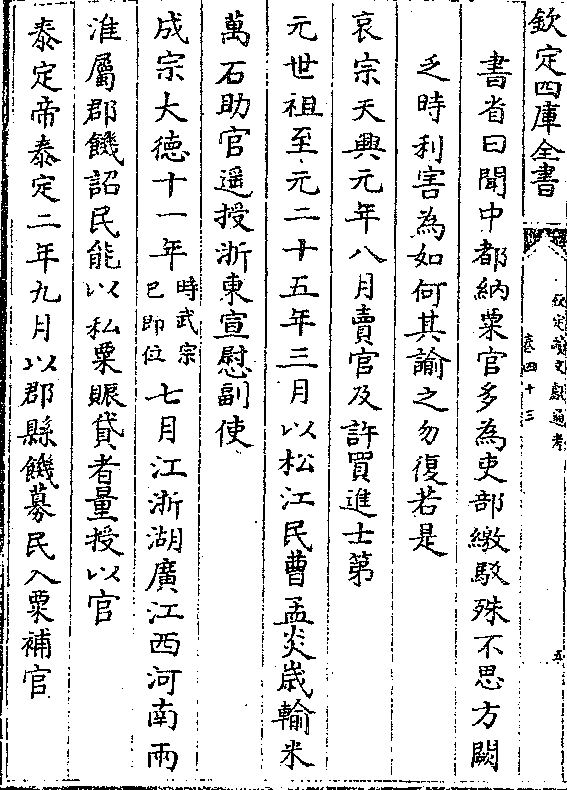 欽定四庫全書
欽定續文獻通考
卷四十三
五
書省曰聞中都納粟官多為吏部繳駁殊不思方闕
乏時利害為如何其諭之勿復若是
哀宗天興元年八月賣官及許買進士第
元世祖至元二十五年三月以松江民曹孟炎歲輸米
萬石助官遥授浙東宣慰副使
成宗大徳十一年時武宗已即位七月江浙湖廣江西河南兩
淮屬郡饑詔民能以私粟賑貸者量授以官
泰定帝泰定二年九月以郡縣饑募民入粟補官